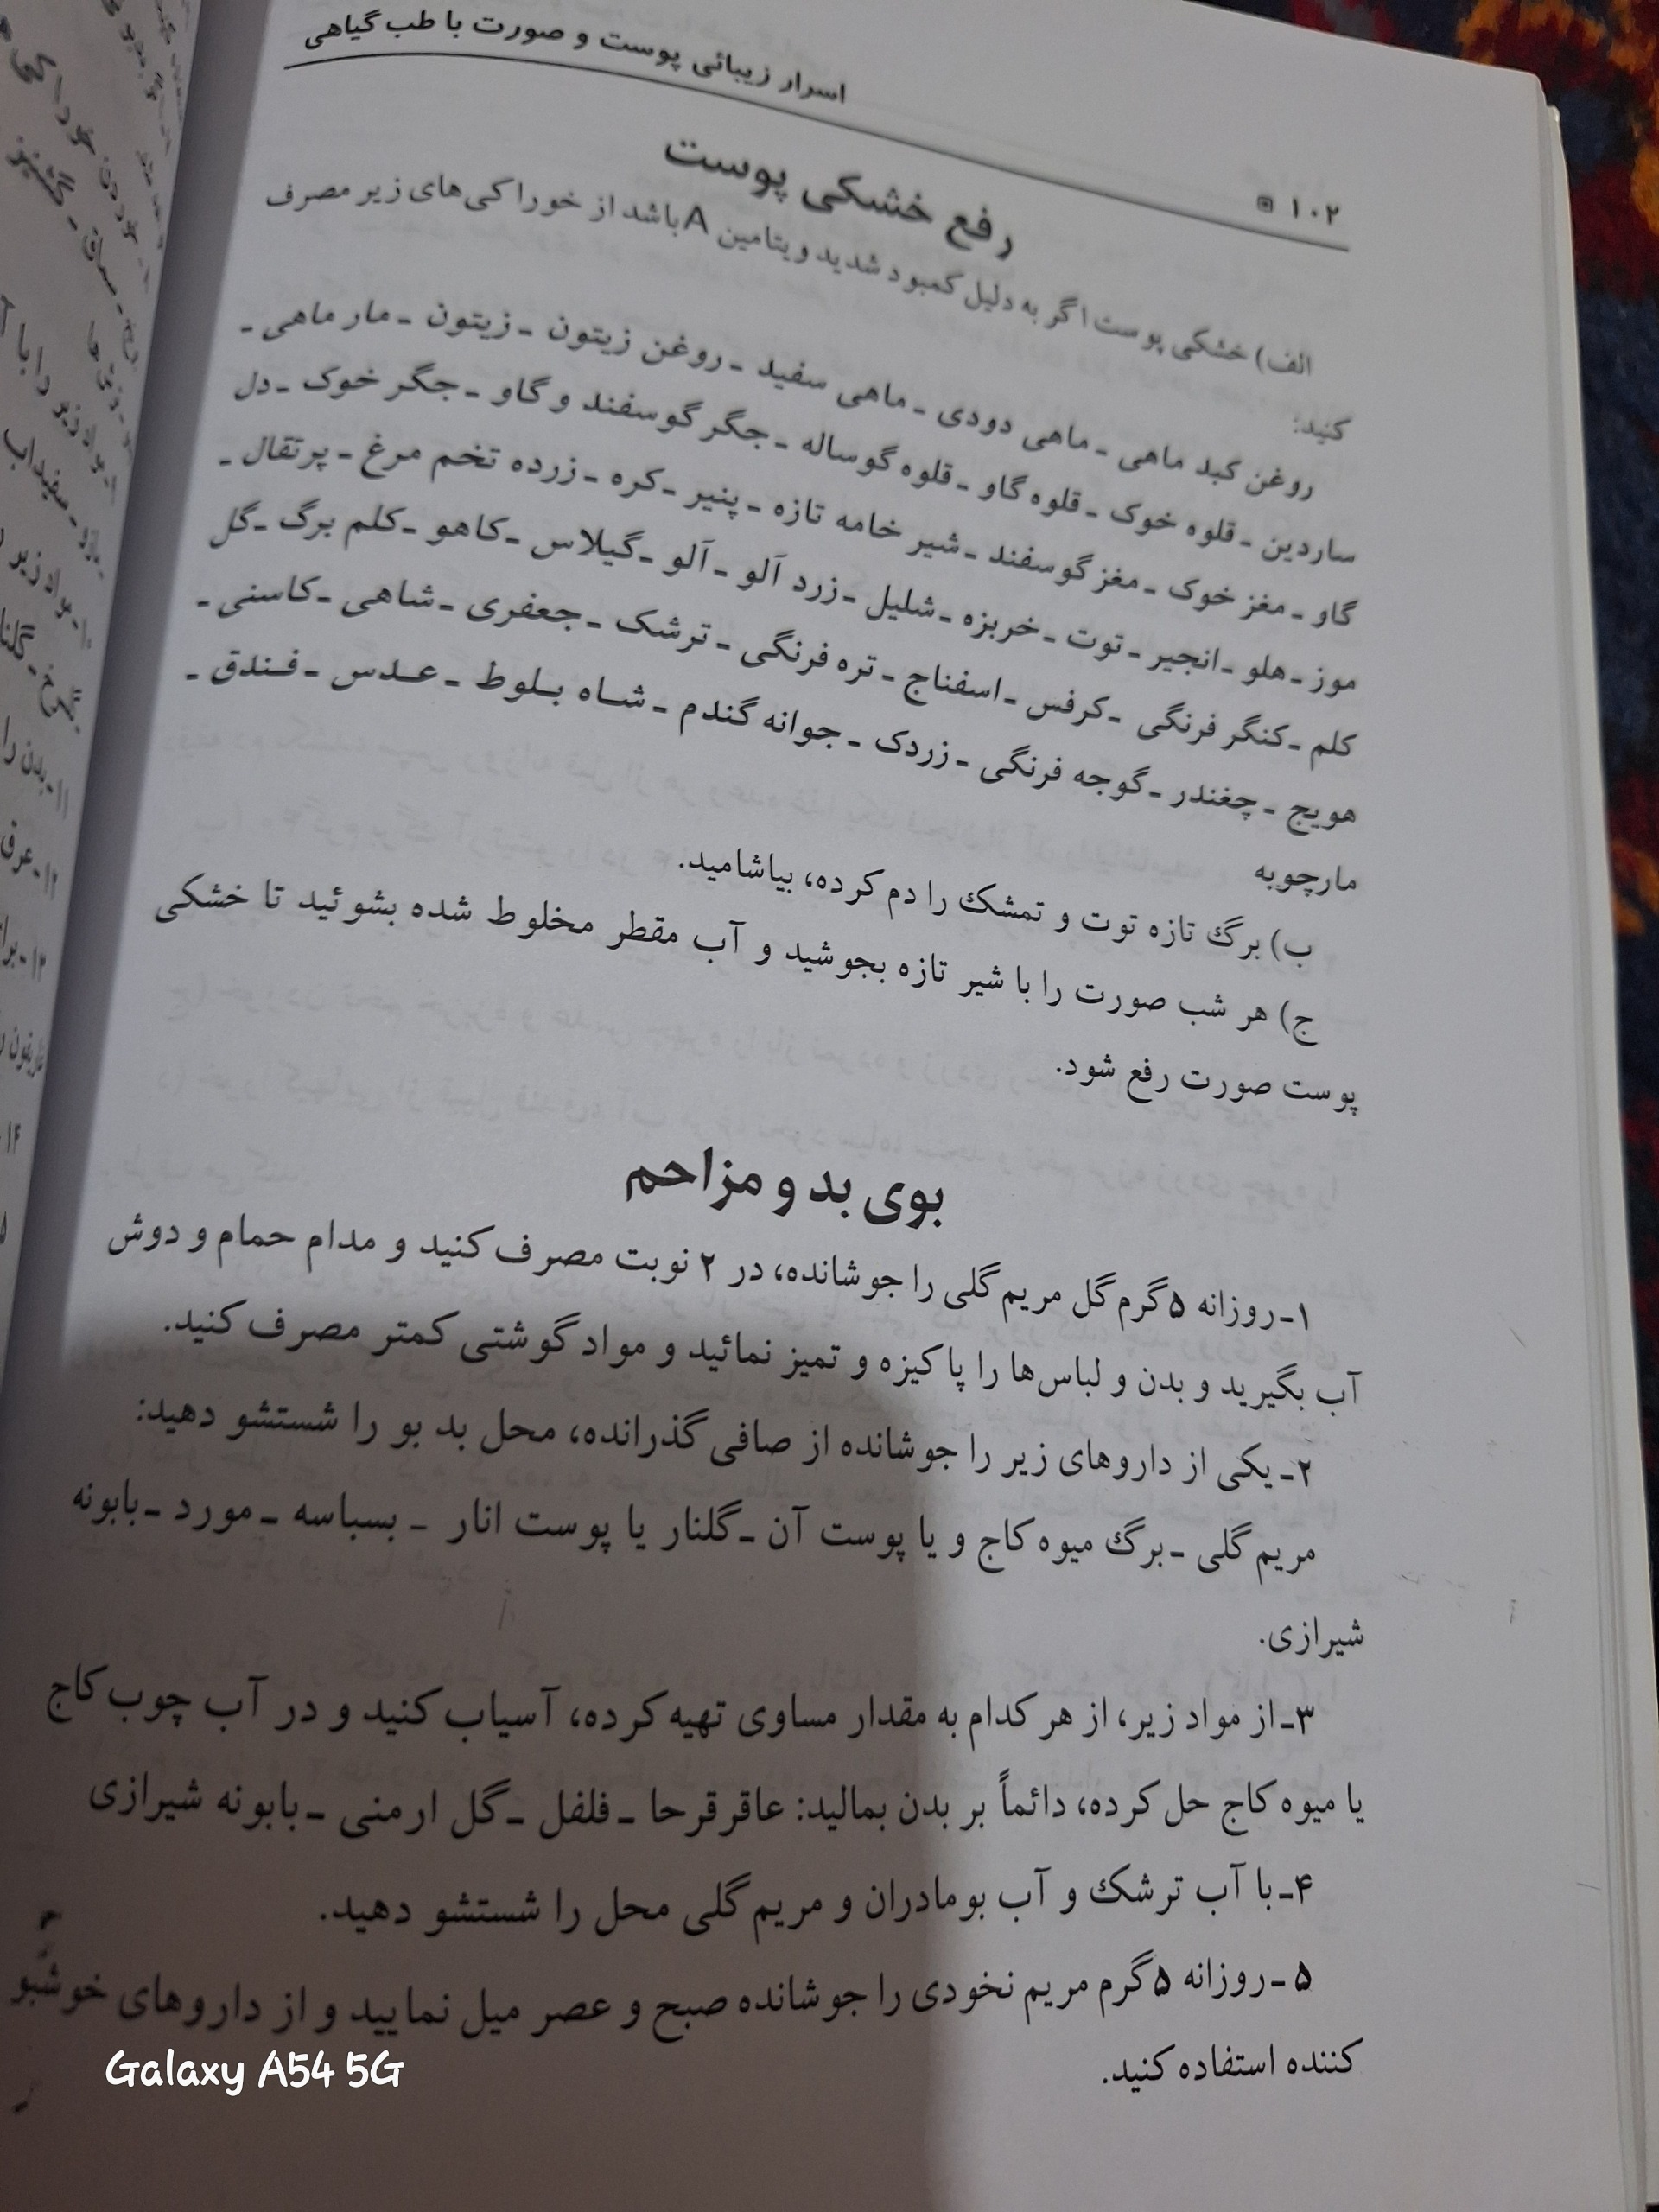 اسرار زیبائی پوست و صورت با طب گیاهی
۱۰۲
رفع خشکی پوست
الف) خشکی پوست اگر به دلیل کمبود شدید ویتامین A باشد از خوراکی‌های زیر مصرف
کنید:
روغن کبد ماهی ـ ماهی دودی ـ ماهی سفید ـ روغن زیتون ـ زیتون ـ مار ماهی ـ
ساردین ـ قلوه خوک ـ قلوه گاو ـ قلوه گوساله ـ جگر گوسفند و گاو ـ جگر خوک ـ دل
گاو ـ مغز خوک ـ مغز گوسفند ـ شیر خامه تازه ـ پنیر ـ کره ـ زرده تخم مرغ ـ پرتقال ـ
موز ـ هلو ـ انجیر ـ توت ـ خربزه ـ شلیل ـ زرد آلو ـ آلو ـ گیلاس ـ کاهو ـ کلم برگ ـ گل
کلم ـ کنگر فرنگی ـ کرفس ـ اسفناج ـ تره فرنگی ـ ترشک ـ جعفری ـ شاهی ـ کاسنی ـ
هویج ـ چغندر ـ گوجه فرنگی ـ زردک ـ جوانه گندم ـ شاه بلوط ـ عدس ـ فندق ـ
مارچوبه
ب) برگ تازه توت و تمشک را دم کرده، بیاشامید.
ج) هر شب صورت را با شیر تازه بجوشید و آب مقطر مخلوط شده بشوئید تا خشکی
پوست صورت رفع شود.
بوی بد و مزاحم
۱ـ روزانه ۵ گرم گل مریم گلی را جوشانده، در ۲ نوبت مصرف کنید و مدام حمام و دوش
آب بگیرید و بدن و لباس‌ها را پاکیزه و تمیز نمائید و مواد گوشتی کمتر مصرف کنید.
۲ـ یکی از داروهای زیر را جوشانده از صافی گذرانده، محل بد بو را شستشو دهید:
مریم گلی ـ برگ میوه کاج و یا پوست آن ـ گلنار یا پوست انار ـ بسباسه ـ مورد ـ بابونه
شیرازی.
۳ـ از مواد زیر، از هر کدام به مقدار مساوی تهیه کرده، آسیاب کنید و در آب چوب کاج
یا میوه کاج حل کرده، دائماً بر بدن بمالید: عاقرقرحا ـ فلفل ـ گل ارمنی ـ بابونه شیرازی
۴ـ با آب ترشک و آب بومادران و مریم گلی محل را شستشو دهید.
۵ ـ روزانه ۵ گرم مریم نخودی را جوشانده صبح و عصر میل نمایید و از داروهای خوشبو
کننده استفاده کنید.
Galaxy A54 5G